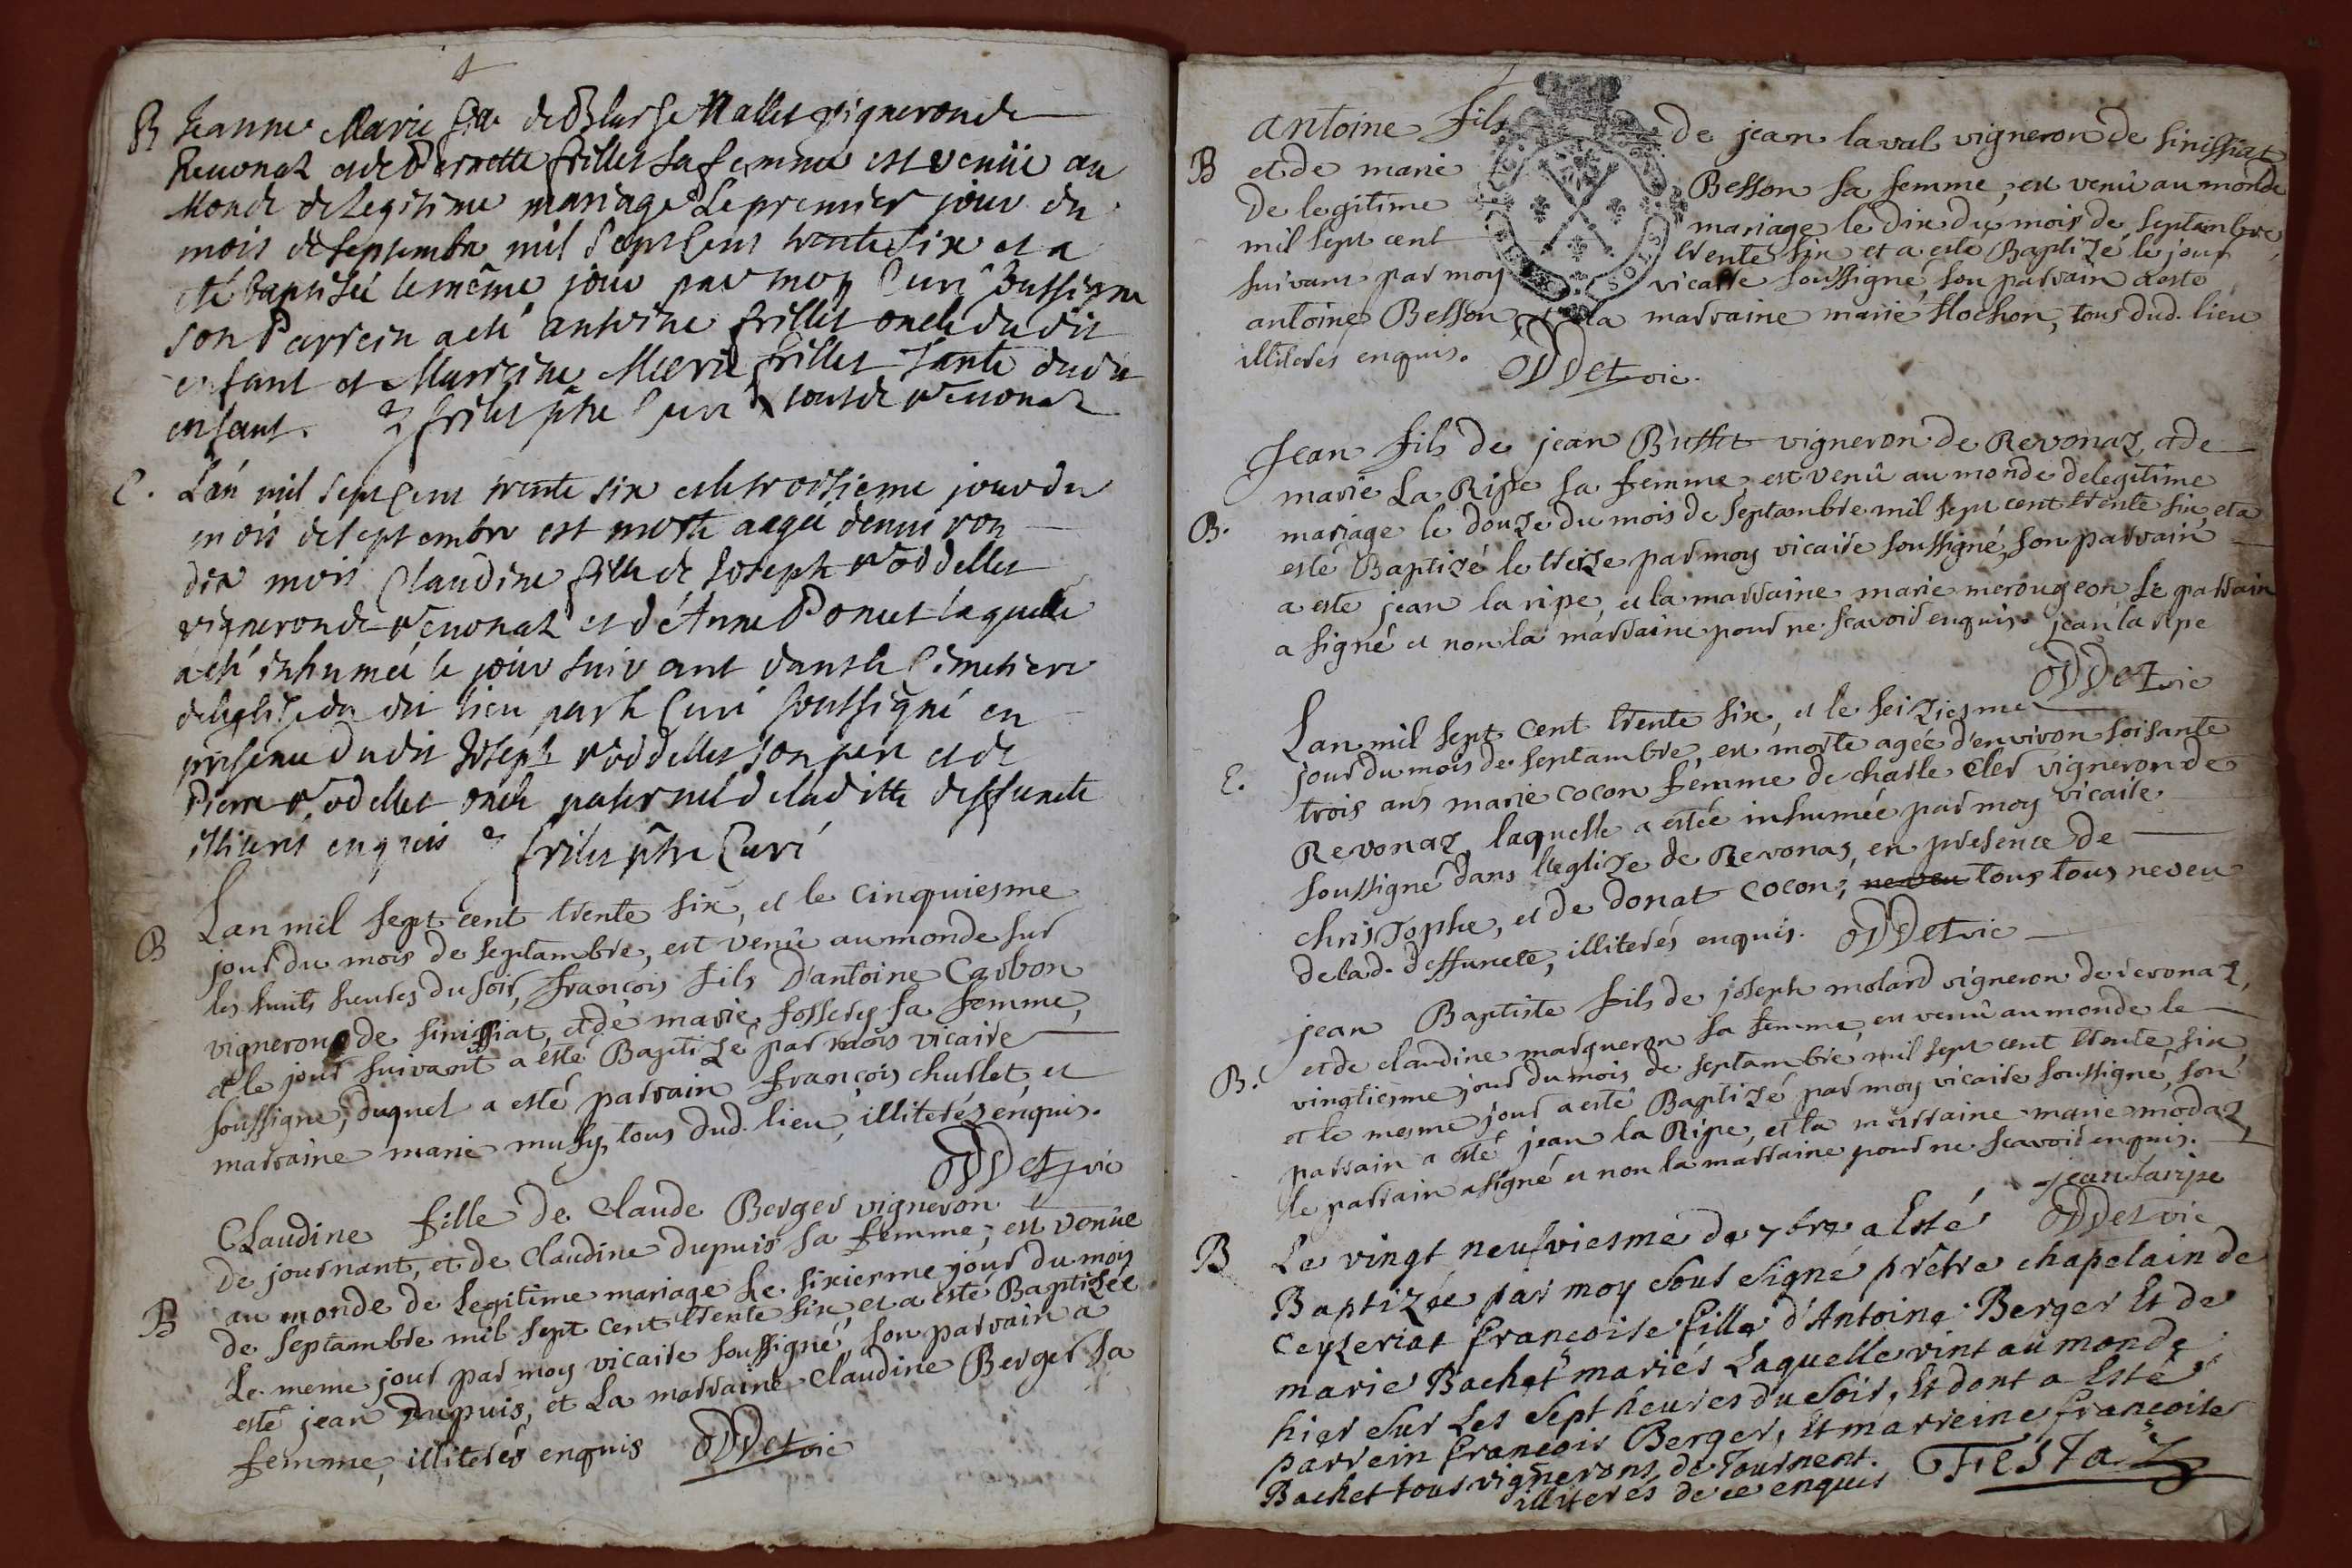 B Jeanne Marie fille de Mallet vigneron de
Revonaz et de Pernette frillet sa femme est venüe au
Monde de Legitime mariage Le premier jour du
mois de septembre mil sept cent trente six et a
été baptisée le même jour par moy Curé soussigne
son Parrein a eté antoine frillet oncle dudit
enfant et Marreine Marie frillet Tante dudit
enfant. frillet ptre Curé tous de Revonaz
E. L'an mil sept cent trente six et le troisieme jour du
mois de septembre est morte aagée d'environ
dix mois Claudine fille de Joseph Roddellet
vigneron de Revonaz et d'Anne Ponet laquelle
a eté inhumée le jour suivant dans le Cimetiere
de l'eglise du dit lieu par le Curé soussigné en
presence dudit Joseph Roddellet son pere et de
Pierre Rodellet oncle paternel de laditte deffuncte
illiterés enquis frillet ptre Curé
B Lan mil sept cent trente six, et le cinquiesme
jour du mois de septambre, est venû au monde sur
les huits heures du soir, françois fils D'antoine Carbon
vigneron de sinissiat, et de marie fosserey sa femme,
et le jour suivant a esté Baptizé par mois vicaire
soussigné, duquel a esté parrain françois chullet, et
marraine marie musy, tous dud. lieu, illiterés enquis.
ODDet vic
B Claudine fille de Claude Berger vigneron
De journant, et de Claudine Dupuis sa femme, est venüe
au monde de Legitime mariage Le sixiesme jour du mois
de septambre mil sept cent trente six et a esté Baptizée
Le meme jour par moy vicaire soussigné, son parrain a
esté jean Dupuis, et La marraine Claudine Berger sa
femme, illiterés enquis ODDet vic
Antoine fils de jean laval vigneron de sinissiat
B et de marie Besson sa femme, est venû au monde
De legitime mariage le dix du mois de septambre,
mil sept cent trente six et a esté Baptizé le jour
suivant par moy vicaire soussigné, son parrain a esté
antoine Besson, et la marraine marie Hochon, tous dud. lieu
illiterés enquis. ODDet vic.
Jean fils de jean Buffet vigneron de Revonaz, et de
marie La Ripe sa femme est venû au monde de legitime
B. mariage le douze du mois de septambre mil sept cent trente six, et a
esté Baptizé le treize par moy vicaire soussigné, son parrain
a esté jean la ripe, et la marraine marie merougeon Le parrain
a signé et non la marraine pour ne scavoir enquis. jean la ripe
ODDet vic
Lan mil sept cent trente six, et le seiziesme
E. jour du mois de septambre, est morte agée d'environ soisante
trois ans marie cocon femme de charle Cler vigneron de
Revonaz, laquelle a estée inhumée par moy vicaire
soussigné dans l'eglize de Revonas, en presence de
christophe, et de donat cocon, neveu tous tous neveu
de lad. deffuncte, illiterés enquis. ODDet vic
jean Baptiste fils de joseph molard vigneron de revonaz,
et de claudine marqueron sa femme, est venû au monde le
B. vingtiesme jour du mois de septambre mil sept cent trente six,
et le mesme jour a esté Baptizé par moy vicaire soussigné, son
parrain a esté jean la Ripe, et la marraine marie modaz,
le parrain a signé et non la marraine pour ne scavoir enquis.
jean laripe
ODDet vic
B Le vingt neufviesme de 7bre a Esté
Baptizée par moy sous signé prêtre chapelain de
Ceyzeriat françoise fille d'Antoine Berger Et de
marie Bachet mariés Laquelle vint au monde
hier sur Les sept heures du soir, Et dont a Esté
parrein françois Berger, Et marreine françoise
Bachet tous vignerons de Journent.
illiterés de ce enquis Festaz